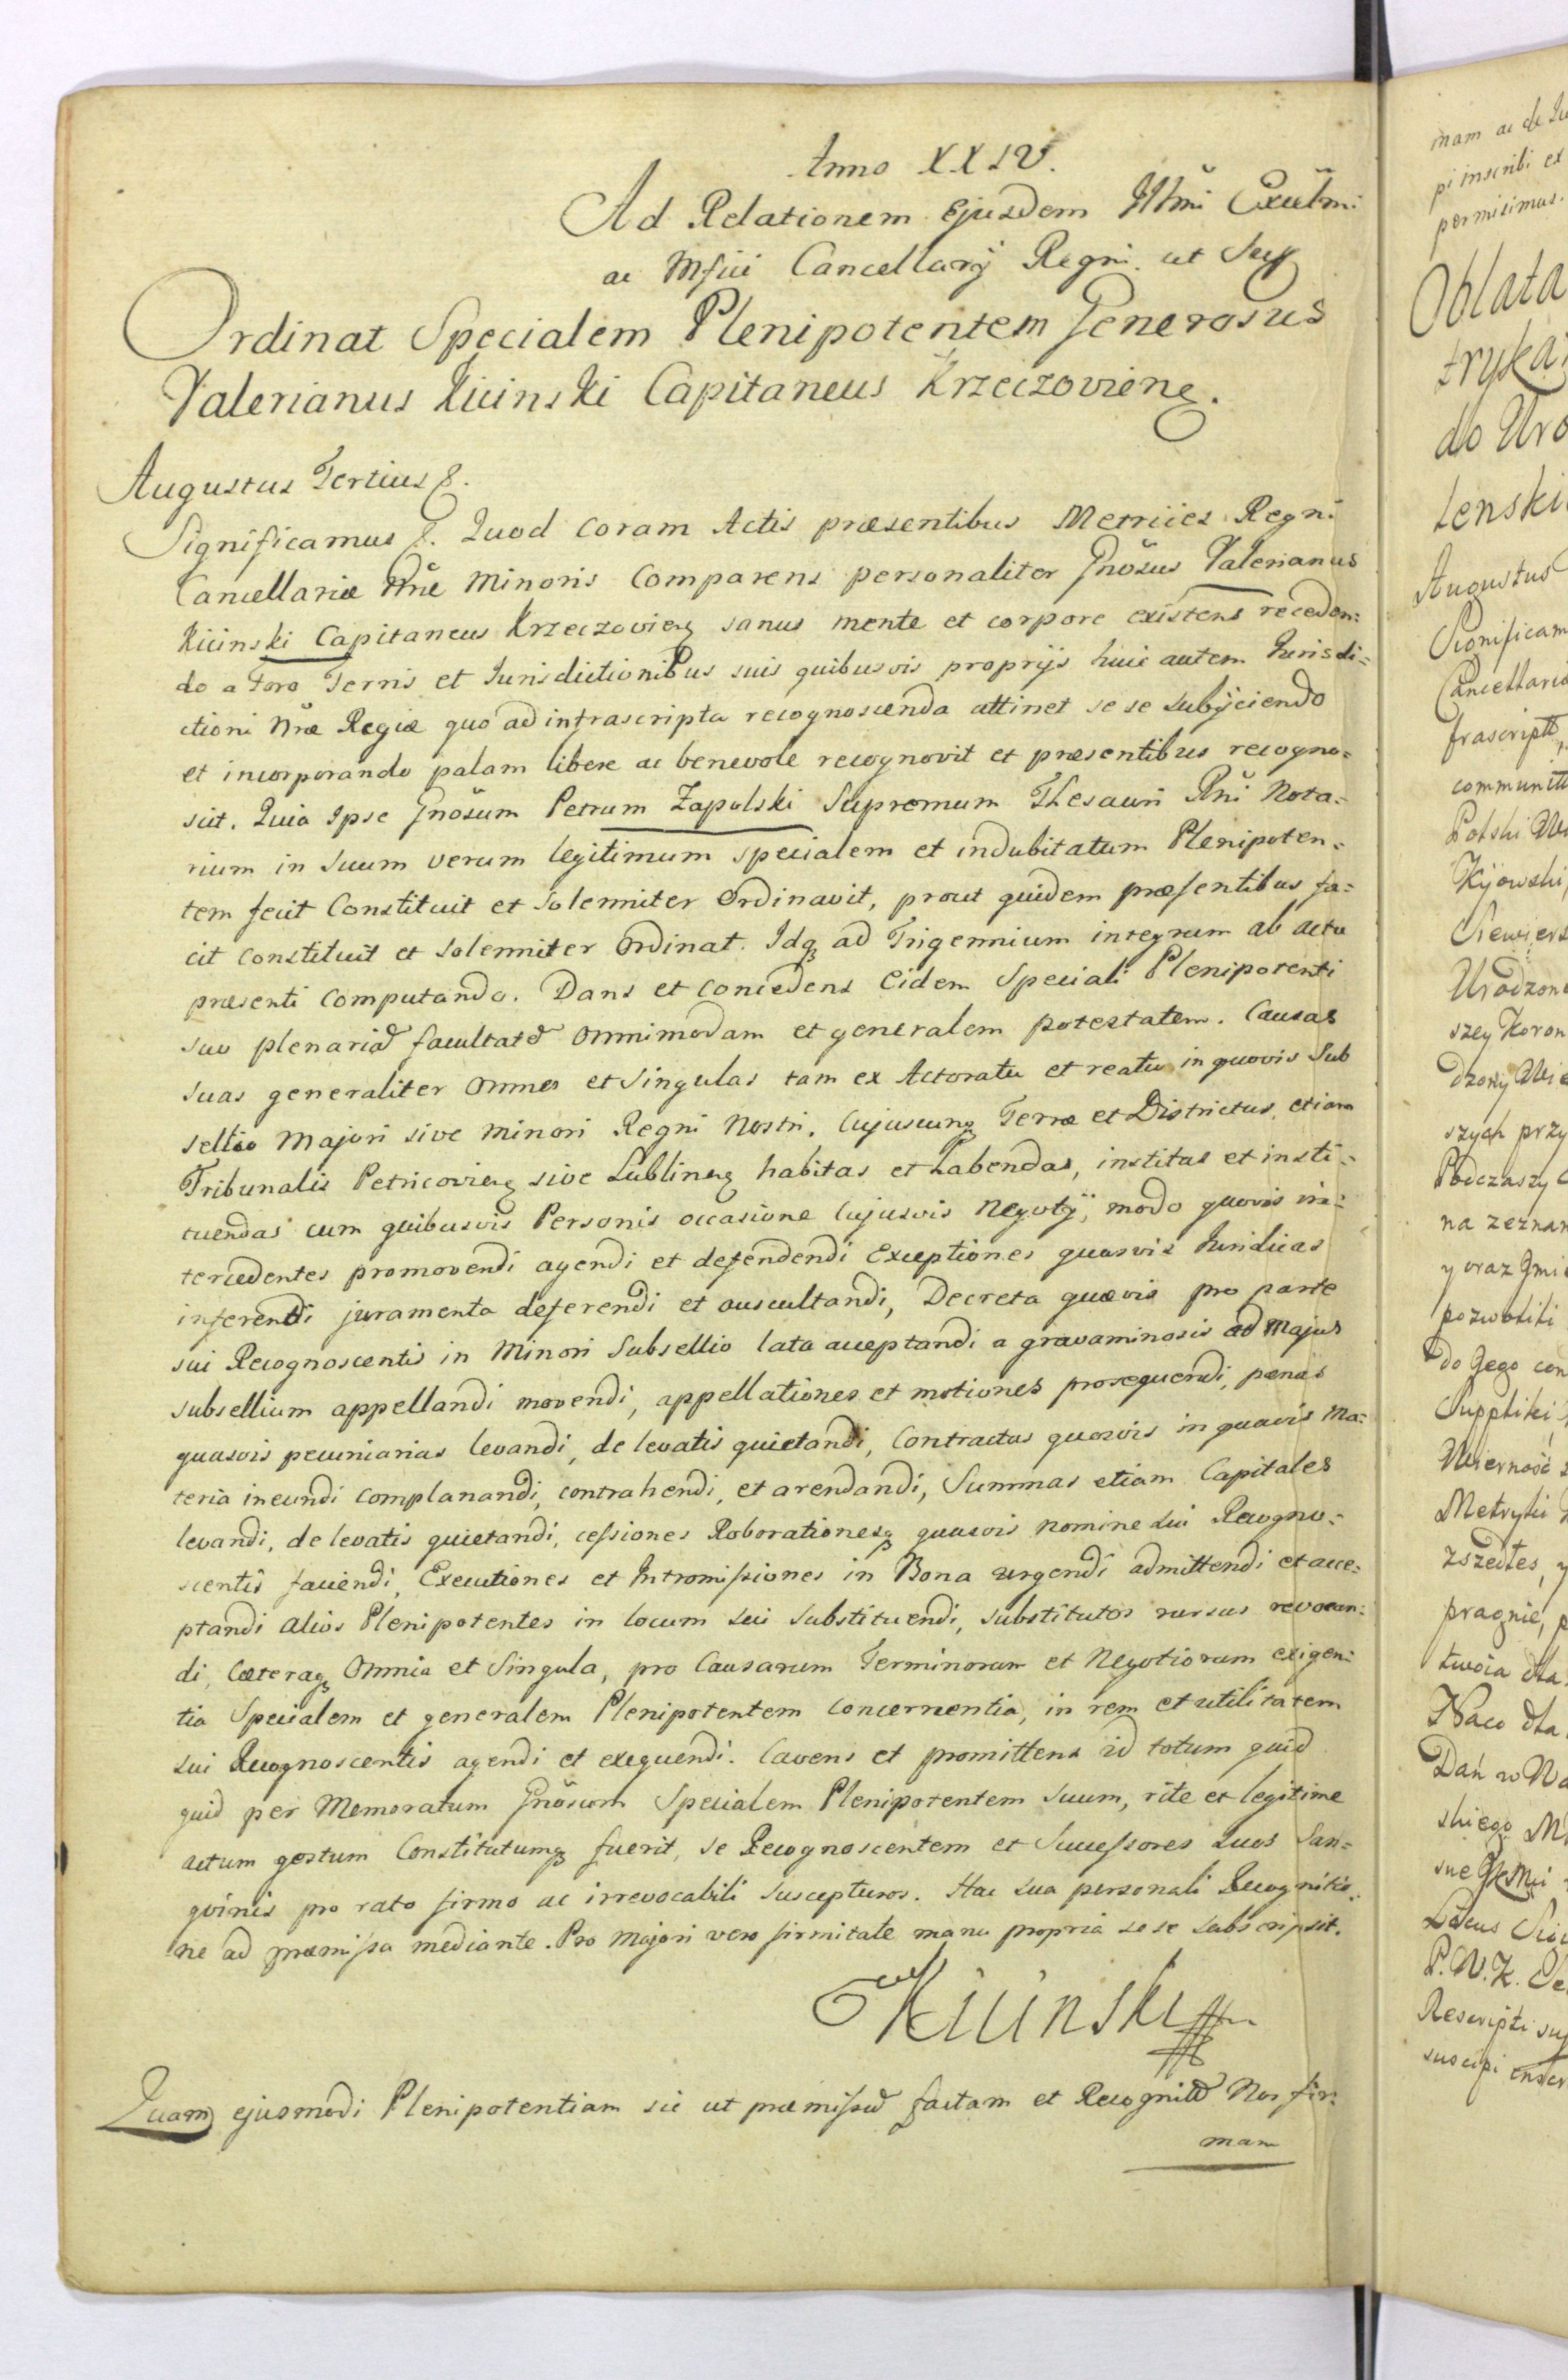 Anno XXIV.
Ad Relationem Ejusdem Illmi Excellmi
ac Mfici Cancellarij Regni ut Supra
Ordinat Specialem Plenipotentem Generosus
Valerianus Kicinski Capitaneus Krzeczoviens.
Augustus Tertius &.
Significamus &. Quod coram Actis præsentibus Metrices Regni
Cancellariæ Nræ Minoris Comparens personaliter Gnosus Valerianus
Kicinski Capitaneus Krzeczoviens sanus mente et corpore existens receden=
do a Foro Terris et Jurisdictionibus suis quibusvis proprijs huic autem Jurisdi=
ctioni Nræ Regiæ quo ad infrascripta recognoscenda attinet se se subijciendo
et incorporando palam libere ac benevole recognovit et præsentibus recogno=
scit. Quia Ipse Gnosum Petrum Zapolski Supremum Thesauri Rni Nota=
rium in suum verum legitimum specialem et indubitatum Plenipoten=
tem fecit Constituit et Solenniter Ordinavit, prout quidem præsentibus fa=
cit constituit et solenniter Ordinat. Idq ad Trigennium integrum ab actu
præsenti computando. Dans et concedens Eidem Speciali Plenipotenti
suo plenariam facultatem Omnimodam et generalem potestatem. Causas
suas generaliter Omnes et Singulas tam ex Actoratu et reatu in quovis Sub
sellio Majori sive Minori Regni Nostri. Cujuscunq Terræ et Districtus, etiam
Tribunalis Petricoviens sive Lublinens habitas et habendas, institas et insti=
tuendas cum quibusvis Personis occasione Cujusvis Negotij, modo quovis in=
tercedentes promovendi agendi et defendendi Exceptiones quasvis Juridicas
inferendi juramenta deferendi et auscultandi, Decreta quævis pro parte
sui Recognoscentis in Minori Subsellio lata acceptandi a gravaminosis ad Majus
subsellium appellandi movendi, appellationes et motiones prosequendi, pænas
quasvis pecuniarias levandi, de levatis quietandi, Contractus quosvis in quavis Ma=
teria ineundi complanandi, contrahendi, et arendandi, Summas etiam Capitales
levandi, de levatis quietandi, cessiones Roborationesq quasvis nomine sui Recogno=
scentis faciendi, Executiones et Intromissiones in Bona urgendi admittendi et acce=
ptandi alios Plenipotentes in locum sui substituendi, substitutos rursus revocan=
di, Cæteraq Omnia et Singula, pro Causarum Terminorum et Negotiorum exigen=
tia Specialem et generalem Plenipotentem Concernentia, in rem et utilitatem
sui Recognoscentis agendi et exequendi. Cavens et promittens id totum quid
quid per Memoratum Gnosum Specialem Plenipotentem Suum, rite et legitime
actum gestum Constitutumq fuerit, se Recognoscentem et Successores suos San=
gvinis pro rato firmo ac irrevocabili suscepturos. Hac sua personali Recognitio=
ne ad præmissa mediante. Pro Majori vero firmitate manu propria se se subscripsit.
Kicinski
Quam ejusmodi Plenipotentiam sic ut præmissum factam et Recognitam Nos fir=
mam
mam ac de
pi inscribi ex
permisimus.
Oblata
do Uro
Augustus
Significam
Cancellaria
frascriptt
communitt
Polski
Kijowski,
szey Koron
szych przy
Podczaszy
na zeznan
y oraz
pozwolili
do Jego con
Suppliki
Wierność
Metryki
zszedłes, y
pragnie, p
twoia dla
Dań w Wa
skiego
Locus Sigi
P. W. K.
Rescripti
suscipi